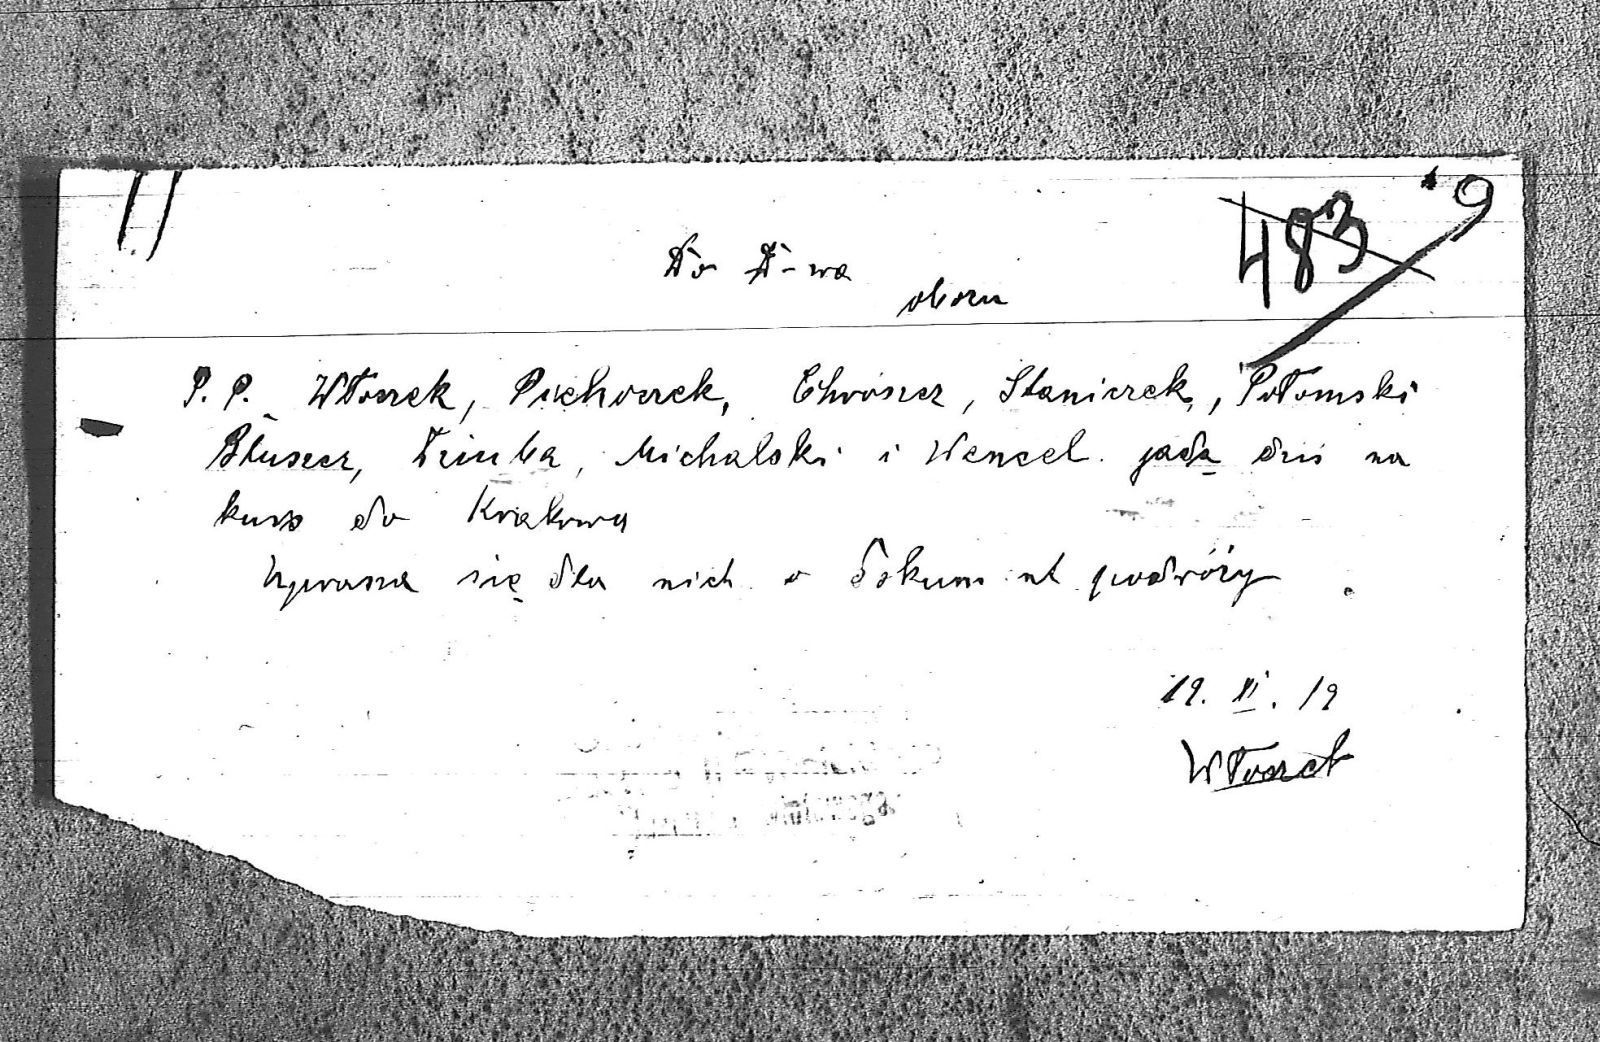 483 9
Do D-wa
obozu
P. P. Wtorek, Piechoczek, Chrószcz, Staniczek, Potomski
Bluszcz, Dziuba, Michalski i Wencel jadą dziś na
kurs do Krakowa
Uprasza się dla nich o dokument podróży
19. XI. 19